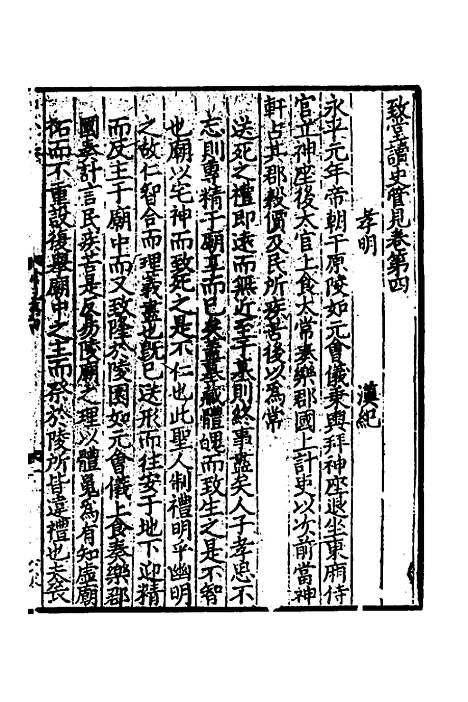 致堂讀史管見卷第四
孝明　漢紀
永平元年帝朝于原陵如元會儀乘輿拜神座退坐東廂侍
官立神座後太官上食太常奏樂郡國上計吏以次前當神
軒占其郡穀價及民所疾苦後以為常
送死之禮即遠而無近至于墓則終事盡矣人子孝忠不
忘則專精于廟享而已矣蓋墓藏體魄而致生之是不智
也廟以宅神而致死之是不仁也此聖人制禮明乎幽明
之故仁智合而理義盡也既已送形而往安于地下迎精
而反主于廟中而又致隆於陵園如元會儀上食奏樂郡
國奏計言民疾苦是反易陵廟之理以體魄為有知虛廟
祏而不重設復舉廟中之主而祭於陵所皆違禮也夫喪